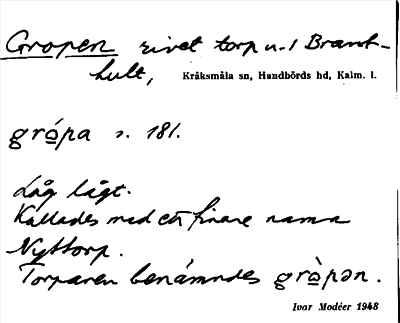 Gropen rivet torp u. 1 Bramt-
hult, Kråksmåla sn, Handbörds hd, Kalm. l.
gró̱pa s. 181.
Låg lågt.
Kallades med ett finare namn
Nyttorp.
Torparen benämndes grò̱pən.
Ivar Modéer 1948